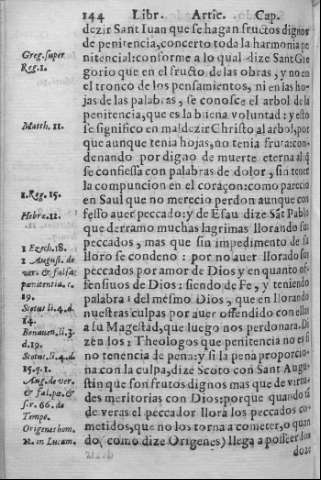 144 Libr. Artic. Cap.
dezir Sant Iuan que se hagan fructos dignos
de penitencia, concerto toda la harmonia pe
Greg. super
Reg. 1.
nitencial: conforme a lo qual dize Sant Gre
gorio que en el fructo de las obras, y no en
el tronco de los pensamientos, ni en las ho-
jas de las palabras, se conosce el arbol de la
penitencia, que es la buena voluntad: y esto
Matth. 11.
se significo en maldezir Christo al arbol, por
que aunque tenia hojas, no tenia fruta: con-
denando por digno de muerte eterna al q̃
se confiessa con palabras de dolor, sin tener
la compuncion en el coraçon: como parecio
1. Reg. 15.
en Saul que no merecio perdon aunque con
Hebre. 12.
fesso auer peccado: y de Esau dize Sãt Pablo
que derramo muchas lagrimas llorando sus
peccados, mas que sin impedimento de su
1 Ezech. 18.
lloro se condeno: por no auer llorado sus
1 August. de
ver. & falsa
pœnitentia. c.
19.
peccados por amor de Dios y en quanto of-
fensiuos de Dios: siendo de Fe, y teniendo
palabra del mesmo Dios, que en llorando
Scotus li. 4. d.
14.
nuestras culpas por auer offendido con ellos
a su Magestad, que luego nos perdonara. Di
Bonauen. li. 3.
d. 19.
zen los Theologos que penitencia no es si
Scotus. li. 4. d.
15. q. 1.
no tenencia de pena: y si la pena proporcio-
na con la culpa, dize Scoto con Sant Augu-
Aug. de ver.
& fal. pœ. &
ser. 66. de
Tempo.
stin que son frutos dignos mas que de virtu-
des meritorias con Dios: porque quando ta
de veras el peccador llora los peccados co-
Origenes hom.
metidos, que no los torna a cometer, o quan
in Lucam.
do (como dize Origenes) llega a posseer